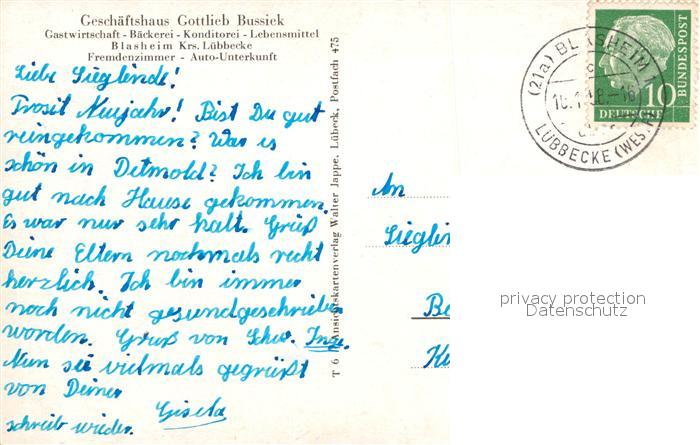 Geschäftshaus Gottlieb Bussiek
Gastwirtschaft - Bäckerei - Konditorei - Lebensmittel
Blasheim Krs. Lübbecke
Fremdenzimmer - Auto-Unterkunft
Liebe Sieglinde!
Prosit Neujahr! Bist Du gut
reingekommen? War es
schön in Detmold? Ich bin
gut nach Hause gekommen.
Es war nur sehr kalt. Grüß
Deine Eltern nochmals recht
herzlich. Ich bin immer
noch nicht gesundgeschrieben
worden. Gruß von Schw. Inge.
Nun sei vielmals gegrüßt
von Deiner
Gisela
schreib wieder.
T 6 Ansichtskartenverlag Walter Jappe, Lübeck, Postfach 475
An
Sieglin
Be
(21a) BLASHEIM
LÜBBECKE (WESTF
DEUTSCHE
BUNDESPOST
10
privacy protection
Datenschutz